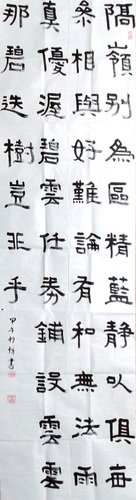 隔嶺別為區精藍靜以俱毎
条相與好難論有和無法雨
真優渥碧雲仕勞鋪設雲雲
那碧迭樹豈非乎
甲午 書